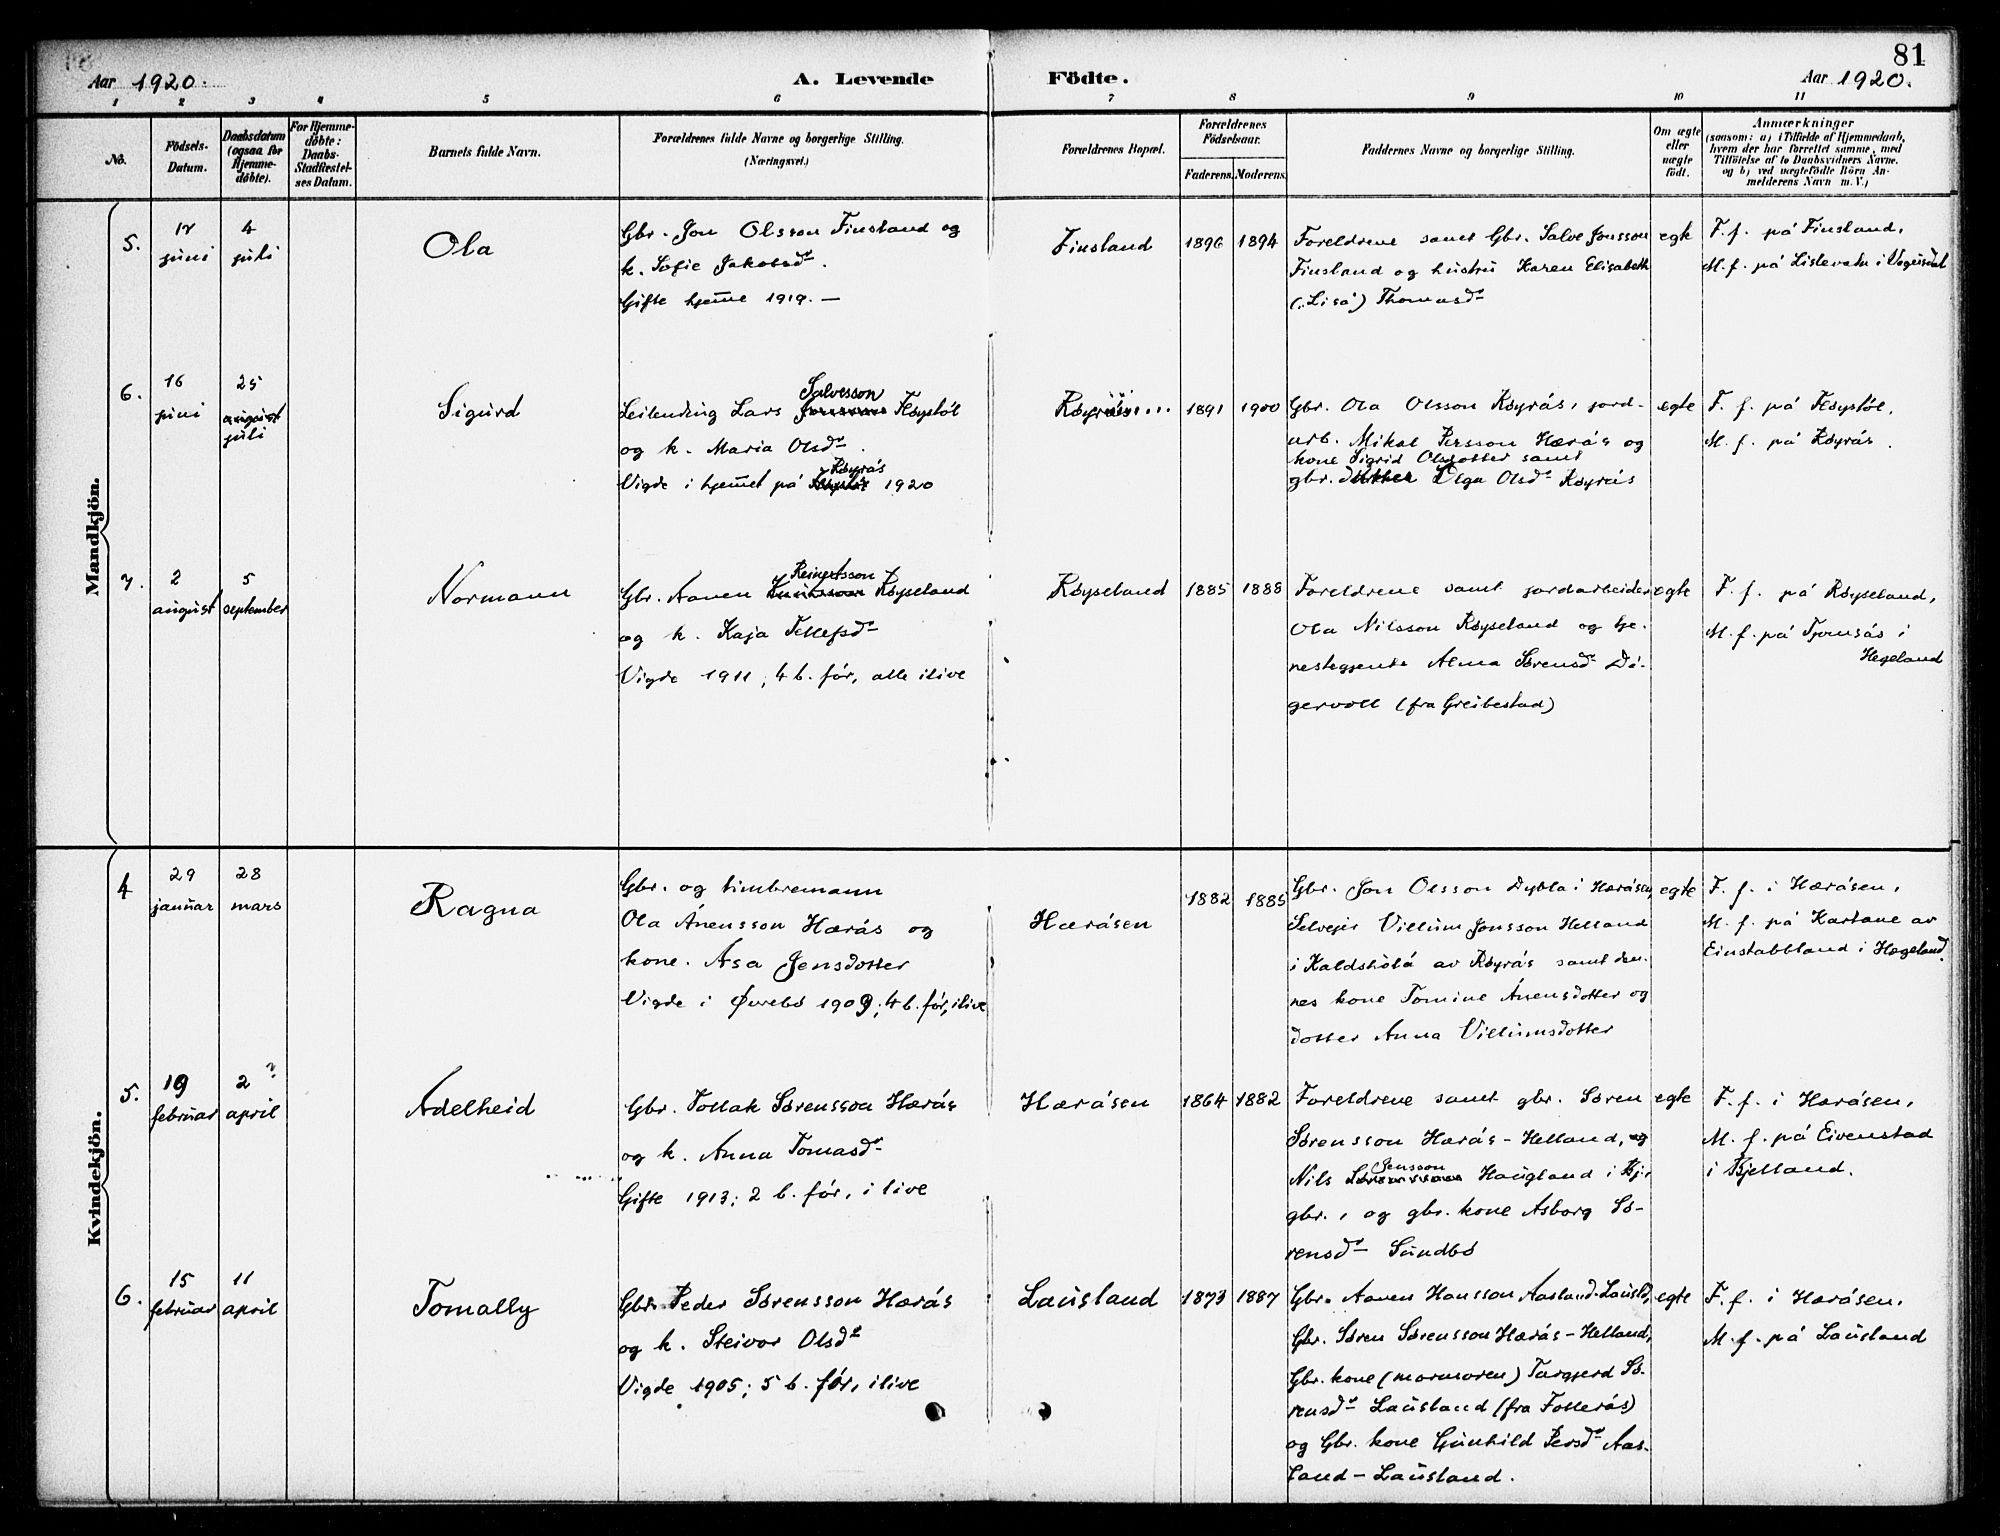 81
Aar 1920.
A. Levende Födte.
Aar 1920.
1 2 3 4 5 6 7 8 9 10 11
No.
Födsels-Datum.
Daabsdatum (ogsaa for Hjemme-döbte).
For Hjemme-döbte: Daabs-Stadfæstel-ses Datum.
Barnets fulde Navn.
Forældrenes fulde Navne og borgerlige Stilling.
(Næringsvei.)
Forældrenes Bopæl.
Forældrenes Födselsaar.
Faderens. Moderens.
Faddernes Navne og borgerlige Stilling.
Om ægte eller uægte födt.
Anmærkninger
(saasom: a) i Tilfælde af Hjemmedaab,
hvem der har forrettet samme, med
Tilföielse af to Daabsvidners Navne.
og b) ved uægtefödte Börn An-
melderens Navn m. V.)
Mandkjön.
5.
17 juni
4 juli
Ola
Gbr. Jon Olsson Finsland og
k. Sofie Jakobsd.
Gifte hjeme 1919. —
Finsland
1896 1894
Foreldrene samt Gbr. Salve Jonsson
Finsland og hustru Karen Elisabeth
("Lisa") Thomasd
egte
F. f. på Finsland,
M. f. på Lislevatn i Vegusdal
6.
16 juni
25 august
juli
Sigurd
Salvesson
Leilending Lars Fløystøl
og k. Maria Olsd.
Røyrås
Vigde i hjemet på 1920
Røyrås
1891 1900
Gbr. Ola Olsson Røyrås, jord-
arb. Mikal Persson Hærås og
kone Sigrid Olsdotter samt
gbr. datter Olga Olsd Røyrås
egte
F. f. på Fløystøl,
M. f. på Røyrås.
7.
2 august
5 september
Normann
Reinertsson
Gbr. Aanen Røyseland
og k. Kaja Tellefsd
Vigde 1911; 4 b. før, alle ilive
Røyseland
1885 1888
Foreldrene samt jordarbeider
Ola Nilsson Røyseland og tje-
nestegjente Alma Sørensd Di-
gervoll (fra Greibestad)
egte
F. f. på Røyseland,
M. f. på Tjomsås i
Hegeland
Kvindekjön.
4
29 januar
28 mars
Ragna
Gbr. og timbremann
Ola Ånensson Hærås og
kone. Åsa Jensdotter
Vigde i Øvrebø 1909; 4 b. før, ilive
Hæråsen
1882 1885
Gbr. Jon Olsson Dybla i Hæråsen,
Selveier Villum Jonsson Helland
i Kaldshòlå av Røyrås samt den-
nes kone Tomine Ånensdotter og
dotter Anna Villumsdotter
egte
F. f. i Hæråsen,
M. f. på Kartane av
Einstabbland i Hægeland.
5.
19 februar
2 april ?
Adelheid
Gbr. Tollak Sørensson Hærås
og k. Anna Tomasd
Gifte 1913; 2 b. før, i live
Hæråsen
1864 1882
Foreldrene samt gbr. Søren
Sørensson Hærås-Helland, og
Jensson
Nils Haugland i Bj.
gbr., og gbr. kone Asborg Sø-
rensd Sundbø
egte
F. f. i Hæråsen,
M. f. på Eivenstad
i Bjelland.
6.
15 februar
11 april
Tomally
Gbr. Peder Sørensson Hærås
og k. Steivor Olsd
Vigde 1905; 5 b. før, ilive
Lausland
1873 1887
Gbr. Aanen Hansson Aasland-Lausld,
Gbr. Søren Sørensson Hærås-Helland,
Gbr. kone (mormoren) Targjerd Sø-
rensd Lausland (fra Follerås)
og Gbr. kone Gunhild Persd Aas-
land-Lausland.
egte
F. f. i Hæråsen.
M. f. på Lausland